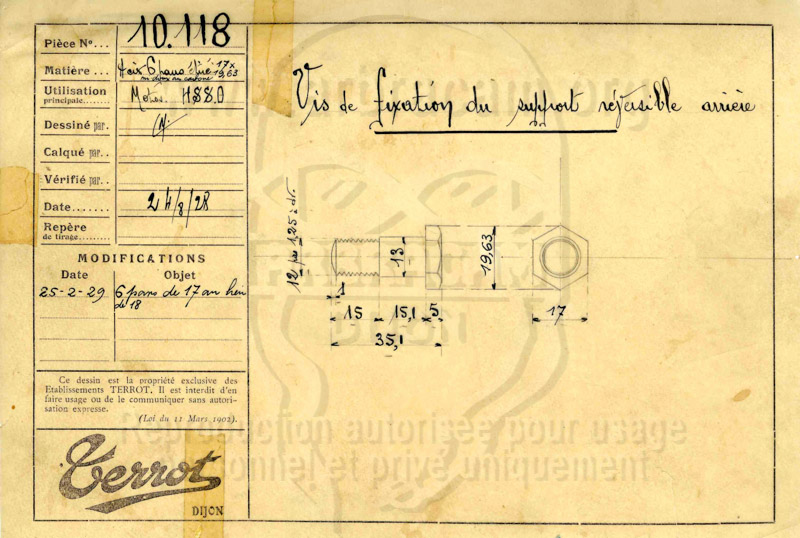 Pièce No... 10.118
Matière ... Acier 6 pans étiré 17 x 19,63
Utilisation principale........ Motos. HSSO
Dessiné par.
Calqué par..
Vérifié par..
Date....... 24/8/28
Repère de tirage........
MODIFICATIONS
Date Objet
25-2-29 6 pans de 17 au lieu
de 18
Ce dessin est la propriété exclusive des
Etablissements TERROT. Il est interdit d'en
faire usage ou de le communiquer sans autori-
sation expresse.
(Loi du 11 Mars 1902).
Terrot
DIJON
Vis de fixation du support réversible arrière
12 pas 1,25 à dr.
13
19,63
1
15 15,1 5
35,1
17
Reproduction autorisée pour usage
personnel et privé uniquement